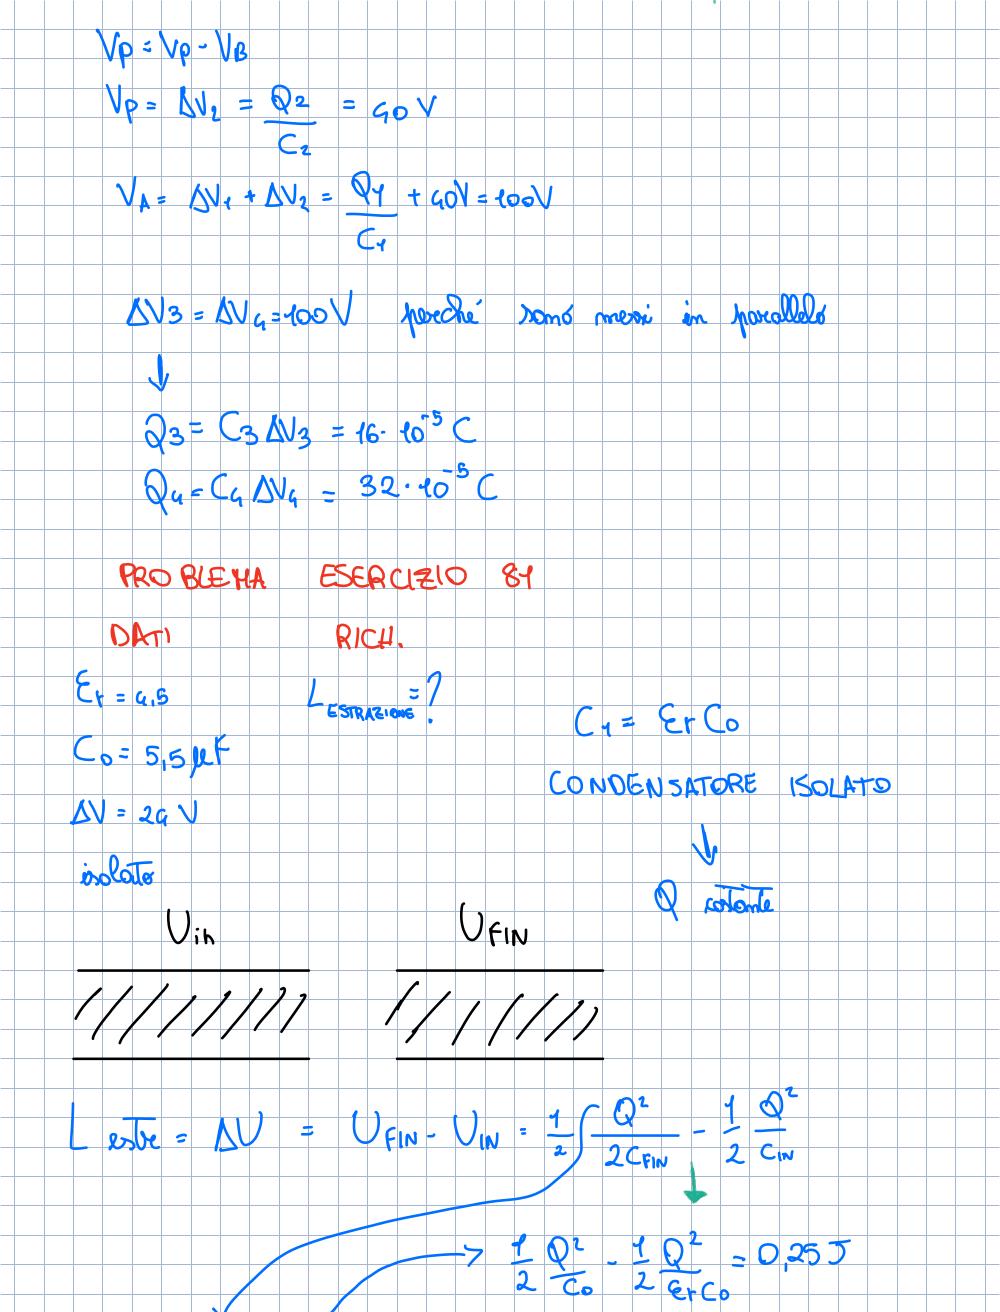 Vp = Vp - VB
Vp = ΔV2 = Q2/C2 = 40 V
VA = ΔV1 + ΔV2 = Q1/C1 + 40V = 100V
ΔV3 = ΔV4 = 100 V perché sono messi in parallelo
↓
Q3 = C3 ΔV3 = 16 · 10^-5 C
Q4 = C4 ΔV4 = 32 · 10^-5 C
PROBLEMA ESERCIZIO 81
DATI RICH.
Er = 4,5 L ESTRAZIONE = ?
C1 = Er C0
C0 = 5,5 μF
CONDENSATORE ISOLATO
ΔV = 24 V
↓
isolato
Q costante
Uin UFIN
L estre = ΔU = UFIN - UIN = 1/2 Q²/2CFIN - 1/2 Q²/CIN
↓
1/2 Q²/C0 - 1/2 Q²/ErC0 = 0,25 J